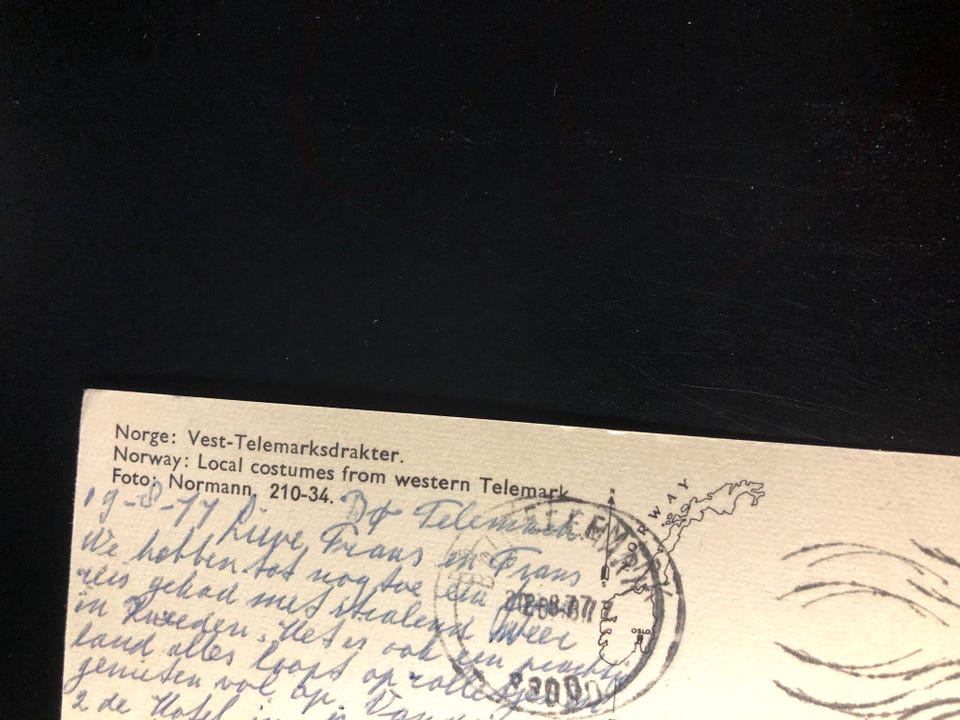 Norge: Vest-Telemarksdrakter.
Norway: Local costumes from western Telemark
Foto: Normann, 210-34.
19-8-77 Telemark
Lieve Frans en Frans
We hebben tot nog toe een
reis gehad met stralend weer
in Zweden. Het is ook een prachtig
land alles loopt op rolletjes en
genieten vol op.
2 de Hotel in
NORWAY
N
S
OSLO
TELEMARK